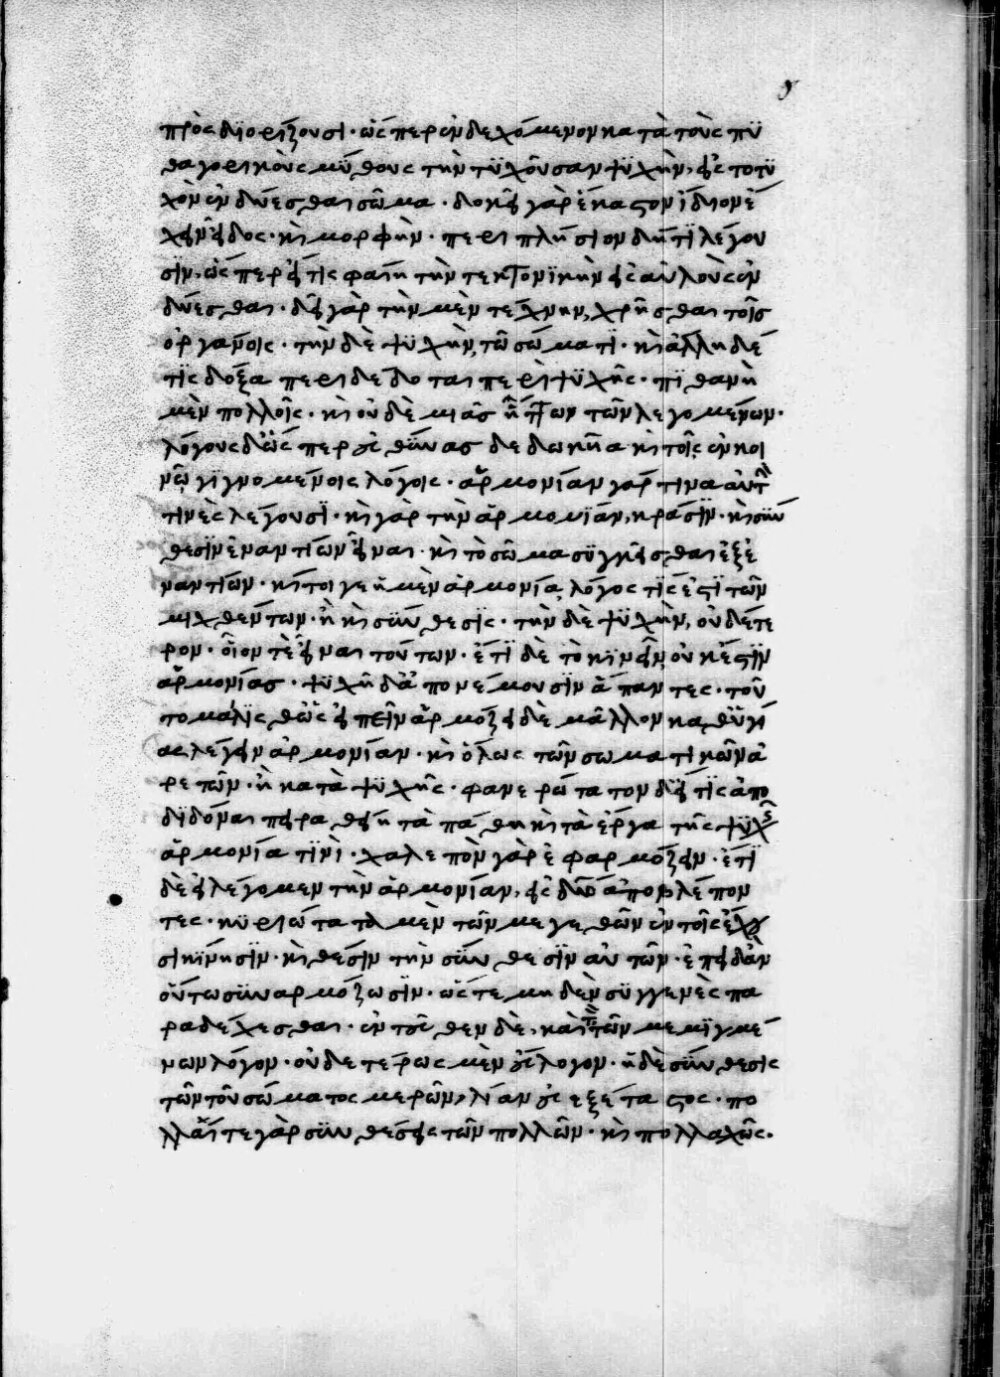 προσδιορίζουσι· ὥσπερ ἐνδεχόμενον κατὰ τοὺς πυ
θαγορικοὺς μύθους τὴν τυχοῦσαν ψυχὴν, εἰς τὸ τυ
χὸν ἐνδύεσθαι σῶμα· δοκεῖ γὰρ ἕκαστον ἴδιον ἔ
χειν εἶδος· καὶ μορφὴν· περιπλήσιον δή τι λέγου
σιν, ὥσπερ εἴ τις φαίη τὴν τεκτονικὴν εἰς αὐλοὺς ἐν
δύεσθαι· δεῖ γὰρ τὴν μὲν τέχνην, χρῆσθαι τοῖς
ὀργάνοις· τὴν δὲ ψυχὴν, τῷ σώματι· καὶ ἄλλη δέ
τις δόξα περιδέδοται περὶ ψυχῆς· πιθανὴ
μὲν πολλοῖς· καὶ οὐδὲ μιᾶς ἧττων τῶν λεγομένων·
λόγους δ' ὥσπερ εὐθύνας δεδωκυῖα καὶ τοῖς ἐν κοι
νῷ γιγνομένοις λόγοις· ἁρμονίαν γάρ τινα αὐτὴν
τινὲς λέγουσι· καὶ γὰρ τὴν ἁρμονίαν, κρᾶσιν· καὶ σύν
θεσιν ἐναντίων εἶναι· καὶ τὸ σῶμα συγκεῖσθαι ἐξ ἐ
ναντίων· καίτοι γε ἡ μὲν ἁρμονία, λόγος τίς ἐστι τῶν
μιχθέντων· ἢ καὶ σύνθεσις· τὴν δὲ ψυχὴν, οὐδέτε
ρον· οἷόν τε εἶναι τούτων· ἔτι δὲ τὸ κινεῖν, οὐκ ἔστιν
ἁρμονίας· ψυχῇ δ' ἀπονέμουσιν ἅπαντες· τοῦ
το μάλις θ' ὡς εἰπεῖν ἁρμόζει δὲ μᾶλλον καθ' ὑγι
ας λέγειν ἁρμονίαν· καὶ ὅλως τῶν σωματικῶν ἀ
ρετῶν· ἢ κατὰ ψυχῆς· φανερώτατον δ' εἴ τις ἀπο
διδόναι πειραθείη τὰ πάθη καὶ τὰ ἔργα τῆς ψυχῆς
ἁρμονία τινὶ· χαλεπὸν γὰρ ἐφαρμόζειν· ἔτι
δὲ εἰ λέγομεν τὴν ἁρμονίαν, εἰς δύο ἀποβλέπον
τες· κυριώτατα μὲν τῶν μεγεθῶν ἐν τοῖς ἔχου
σι κίνησιν· καὶ θέσιν τὴν σύνθεσιν αὐτῶν· ἐπειδὰν
οὕτω συναρμόζωσιν· ὥστε μηδὲν συγγενὲς πα
ραδέχεσθαι· ἐντεῦθεν δὲ, καὶ τὸν τῶν μεμιγμέ
νων λόγον· οὐδετέρως μὲν εὔλογον· ἡ δὲ σύνθεσις
τῶν τοῦ σώματος μερῶν, λίαν εὐεξέταστος· πο
λλαί τε γὰρ συνθέσεις τῶν πολλῶν· καὶ πολλαχῶς·